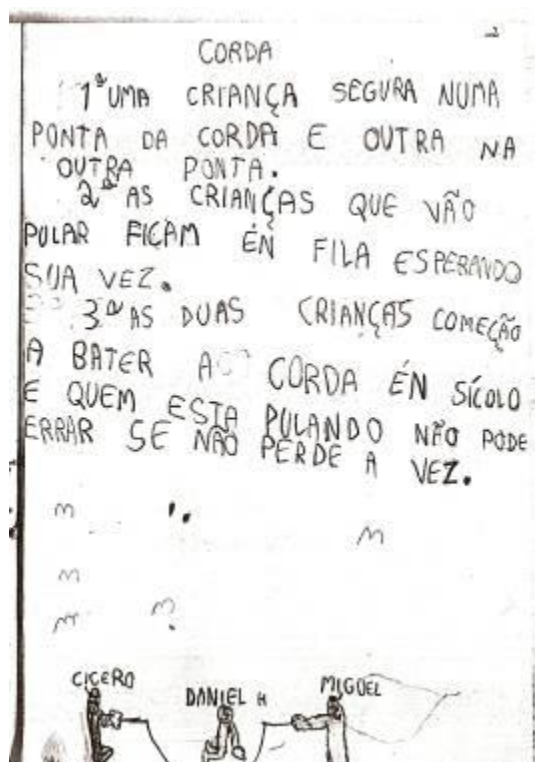 2
CORDA
1ª UMA CRIANÇA SEGURA NUMA
PONTA DA CORDA E OUTRA NA
OUTRA PONTA.
2ª AS CRIANÇAS QUE VÃO
PULAR FICAM ÉN FILA ESPERANDO
SUA VEZ.
3ª AS DUAS CRIANÇAS COMEÇÃO
A BATER A CORDA ÉN SÍCOLO
E QUEM ESTA PULANDO NÃO PODE
ERRAR SE NÃO PERDE A VEZ.
CICERO DANIEL H MIGUEL